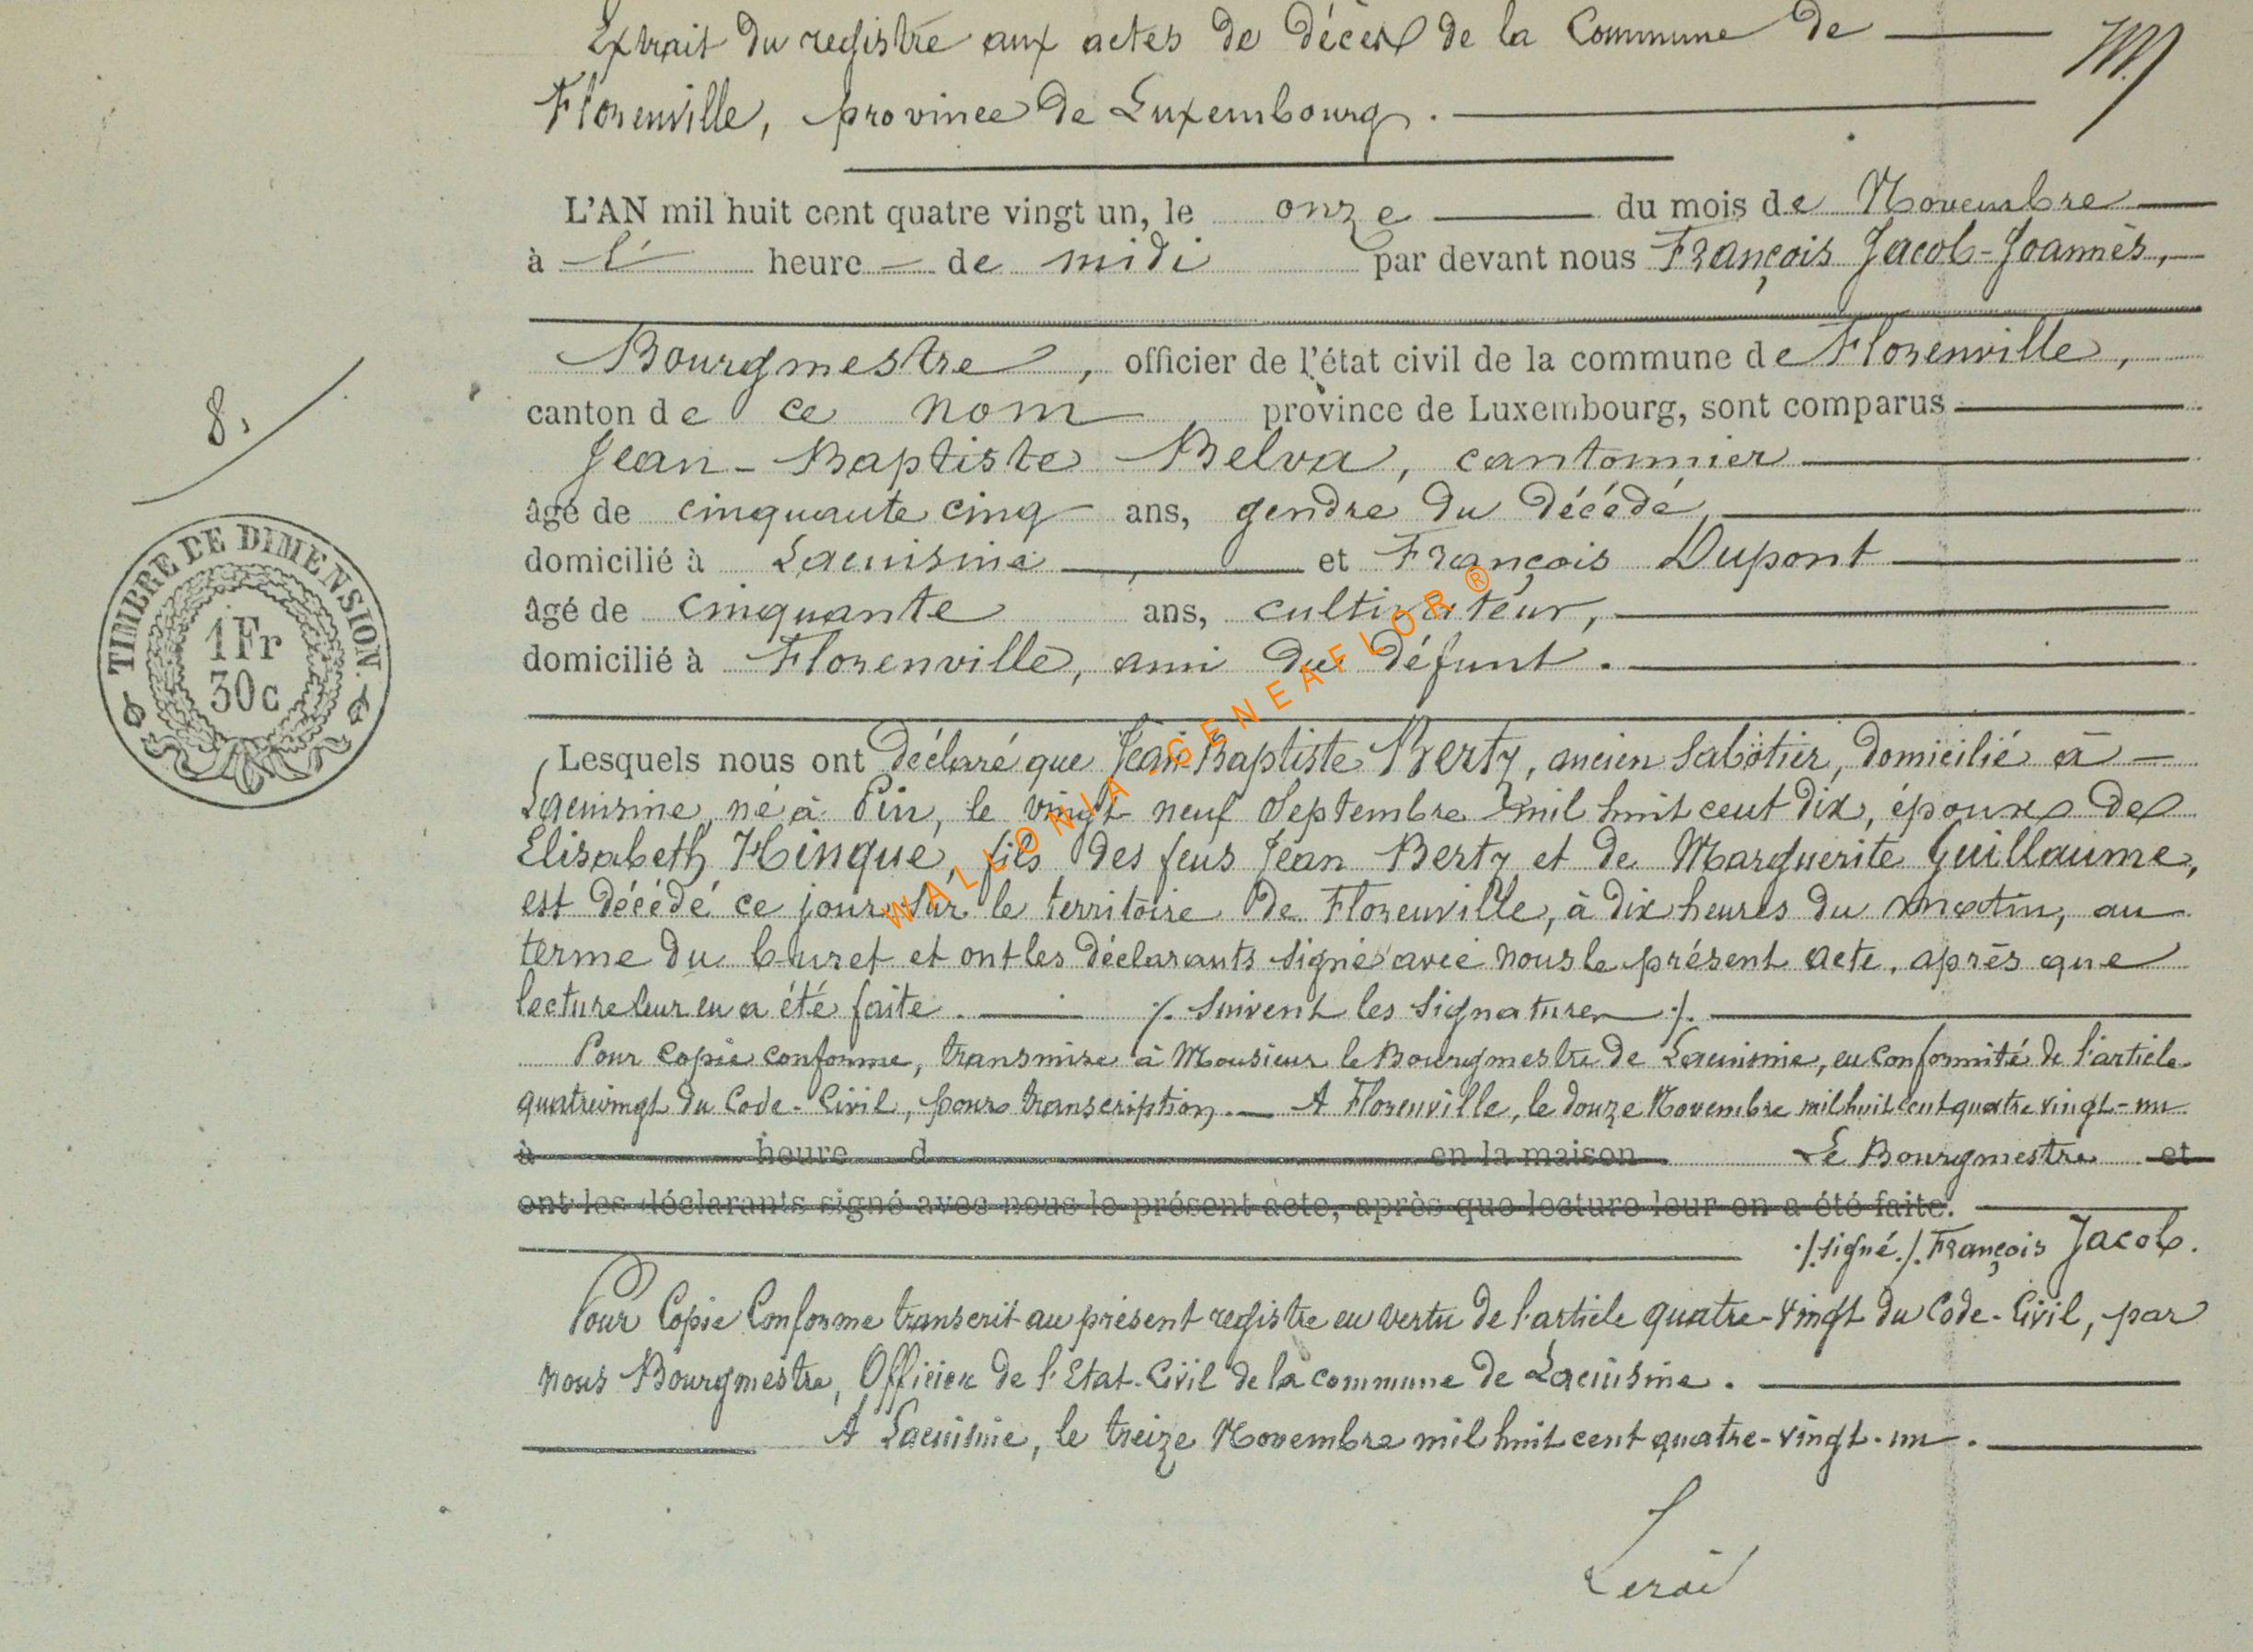 Extrait du registre aux actes de décès de la Commune de
Florenville, province de Luxembourg.
L'AN mil huit cent quatre vingt un, le onze du mois de Novembre
à l' heure de midi par devant nous François Jacob-Joannès,
Bourgmestre, officier de l'état civil de la commune de Florenville,
canton de ce nom province de Luxembourg, sont comparus
Jean-Baptiste Belva, cantonnier
8.
âgé de cinquante cinq ans, gendre du décédé,
domicilié à Lacuisine et François Dupont
âgé de cinquante ans, cultivateur,
domicilié à Florenville, ami du défunt.
TIMBRE DE DIMENSION.
1Fr
30c
Lesquels nous ont déclaré que Jean-Baptiste Berty, ancien sabotier, domicilié à
Lacuisine, né à Pin, le vingt neuf Septembre mil huit cent dix, époux de
Elisabeth Hinque, fils des feus Jean Berty et de Marguerite Guillaume,
est décédé ce jour sur le territoire de Florenville, à dix heures du matin, au
terme du buret et ont les déclarants signé avec nous le présent acte, après que
lecture leur en a été faite. ./. Suivent les signatures ./.
Pour copie conforme, transmise à Monsieur le Bourgmestre de Lacuisine, en conformité de l'article
quatrevingt du Code-Civil, pour transcription. A Florenville, le douze Novembre mil huit cent quatre vingt-un
à heure d en la maison Le Bourgmestre et
ont les déclarants signé avec nous le présent acte, après que lecture leur en a été faite.
./.signé./. François Jacob.
Pour Copie Conforme transcrit au présent registre en vertu de l'article quatre-vingt du Code-Civil, par
nous Bourgmestre, Officier de l'Etat-Civil de la commune de Lacuisine.
A Lacuisine, le treize Novembre mil huit cent quatre-vingt-un.
WALLONIA-GENEAFLOR®